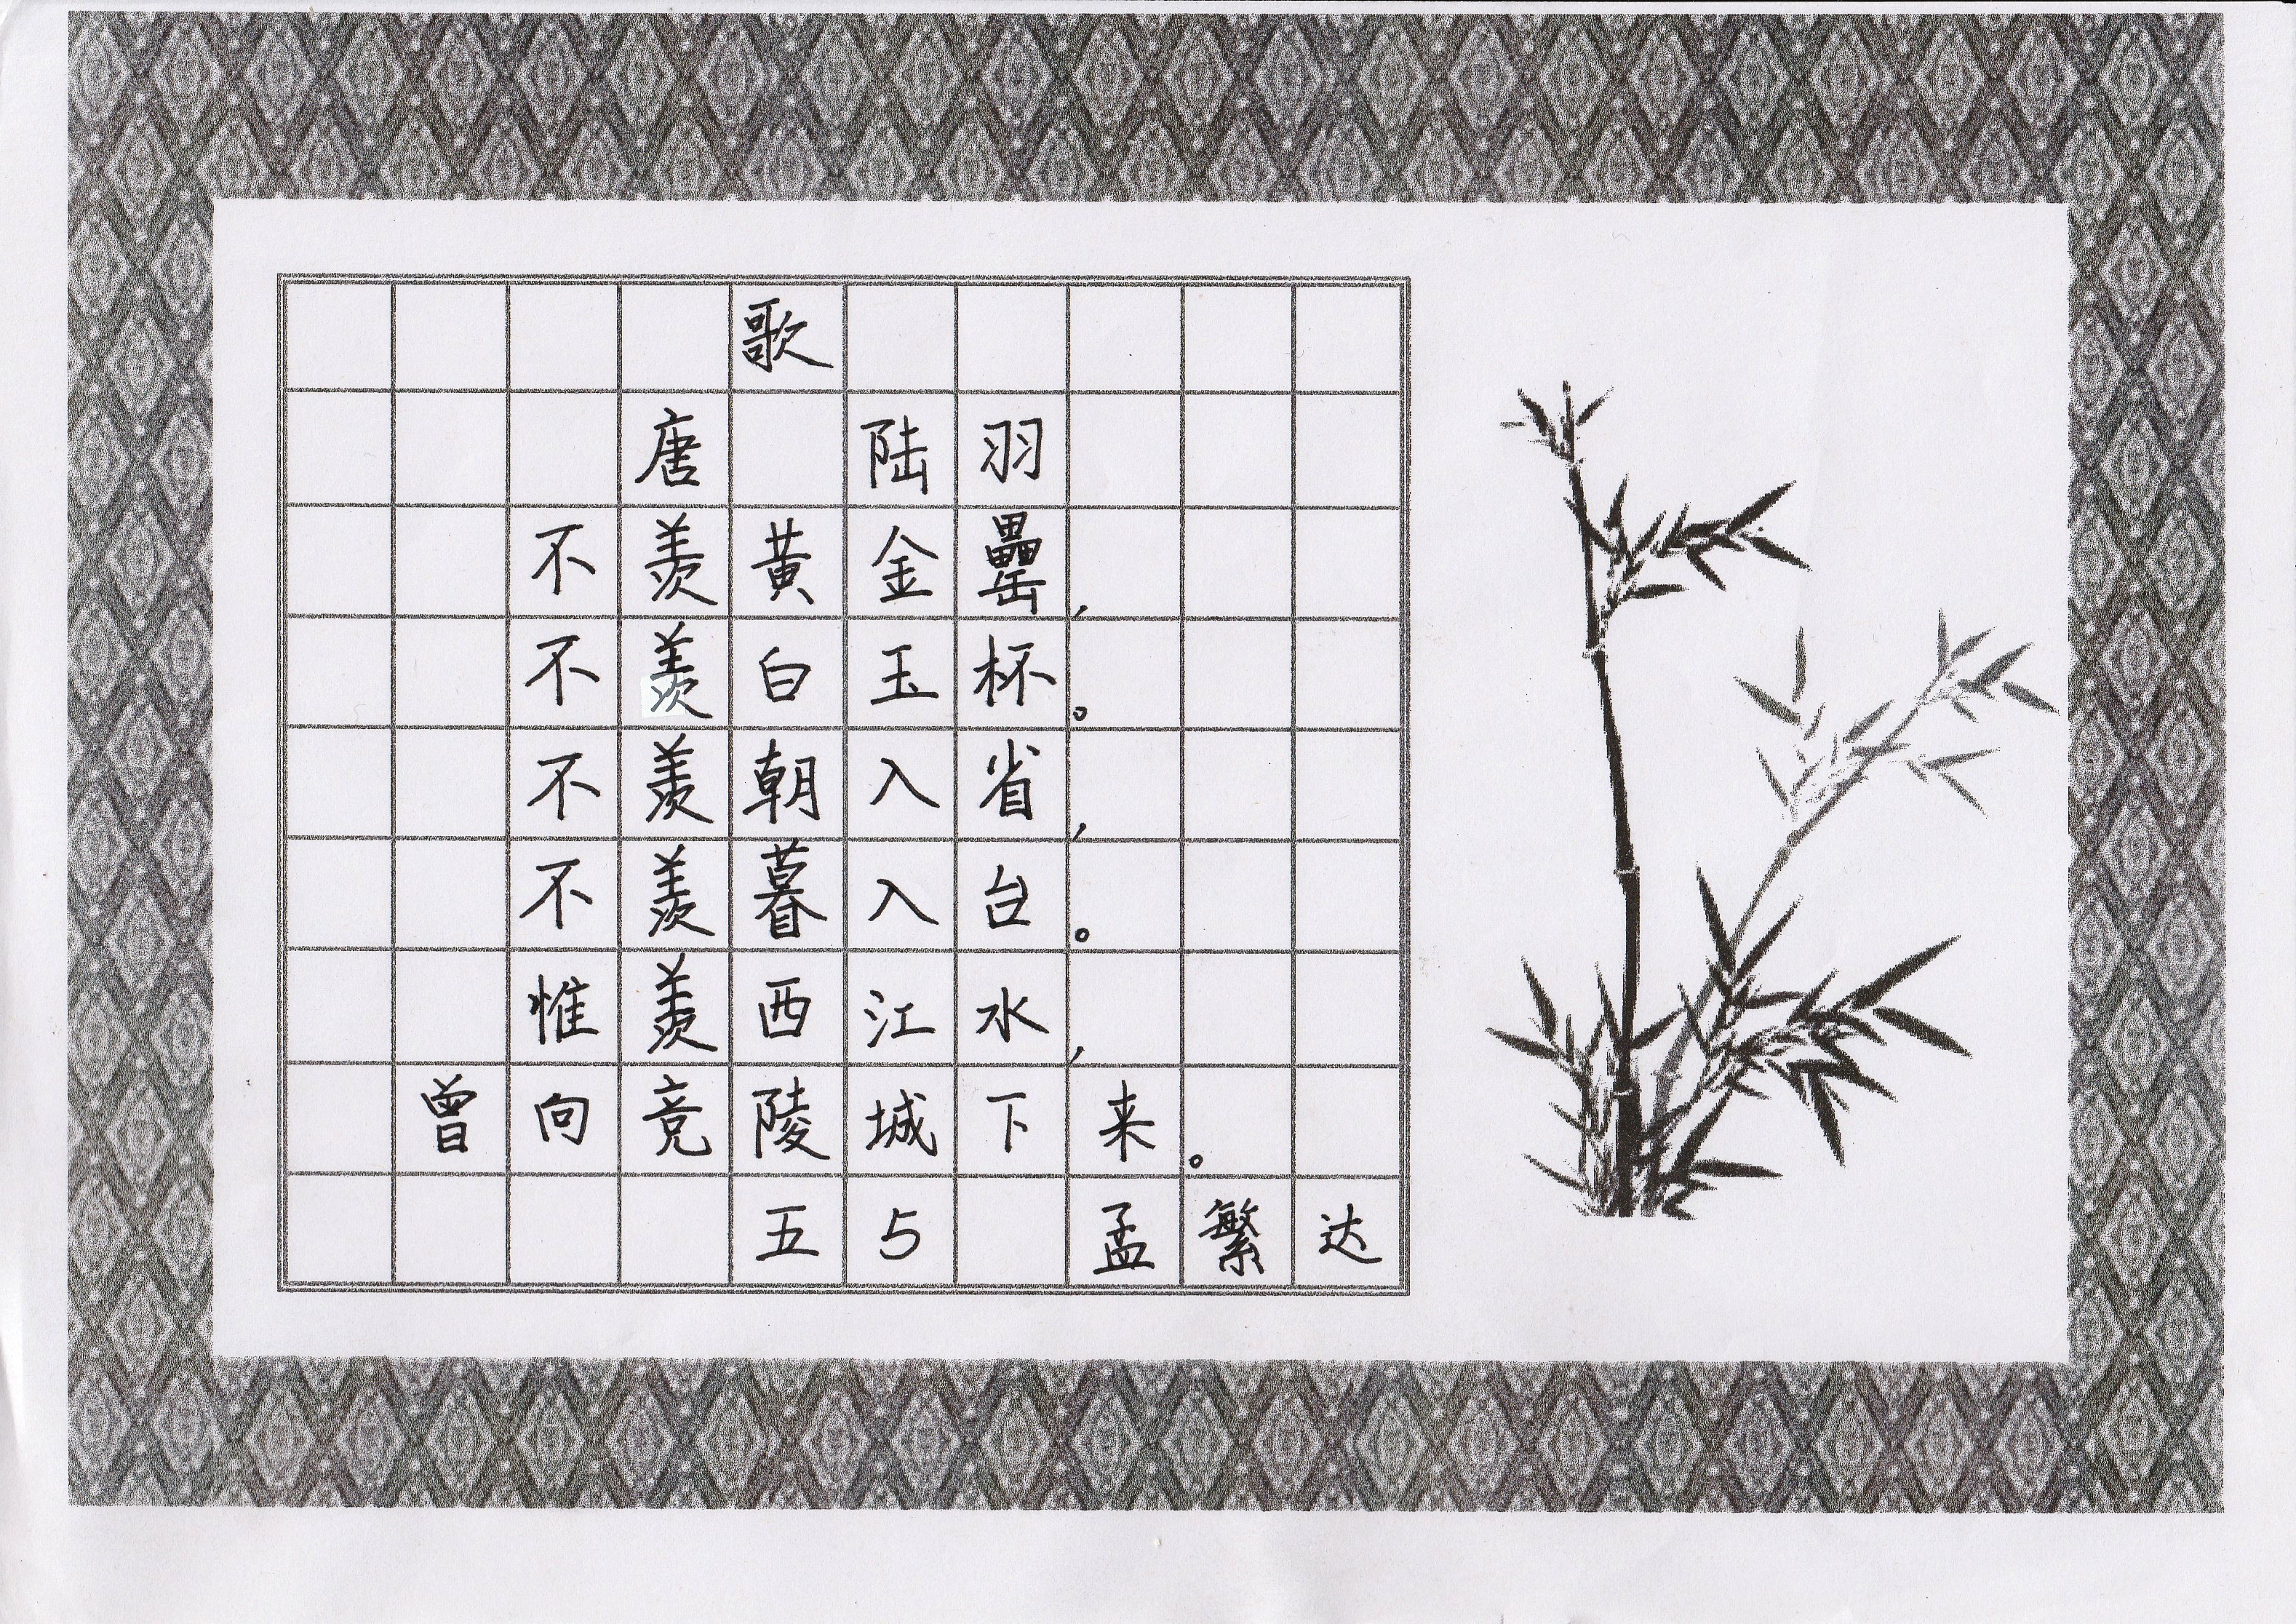 歌
唐 陆羽
不羡黄金罍,
不羡白玉杯。
不羡朝入省,
不羡暮入台。
惟羡西江水,
曾向竞陵城下来。
五5 孟繁达